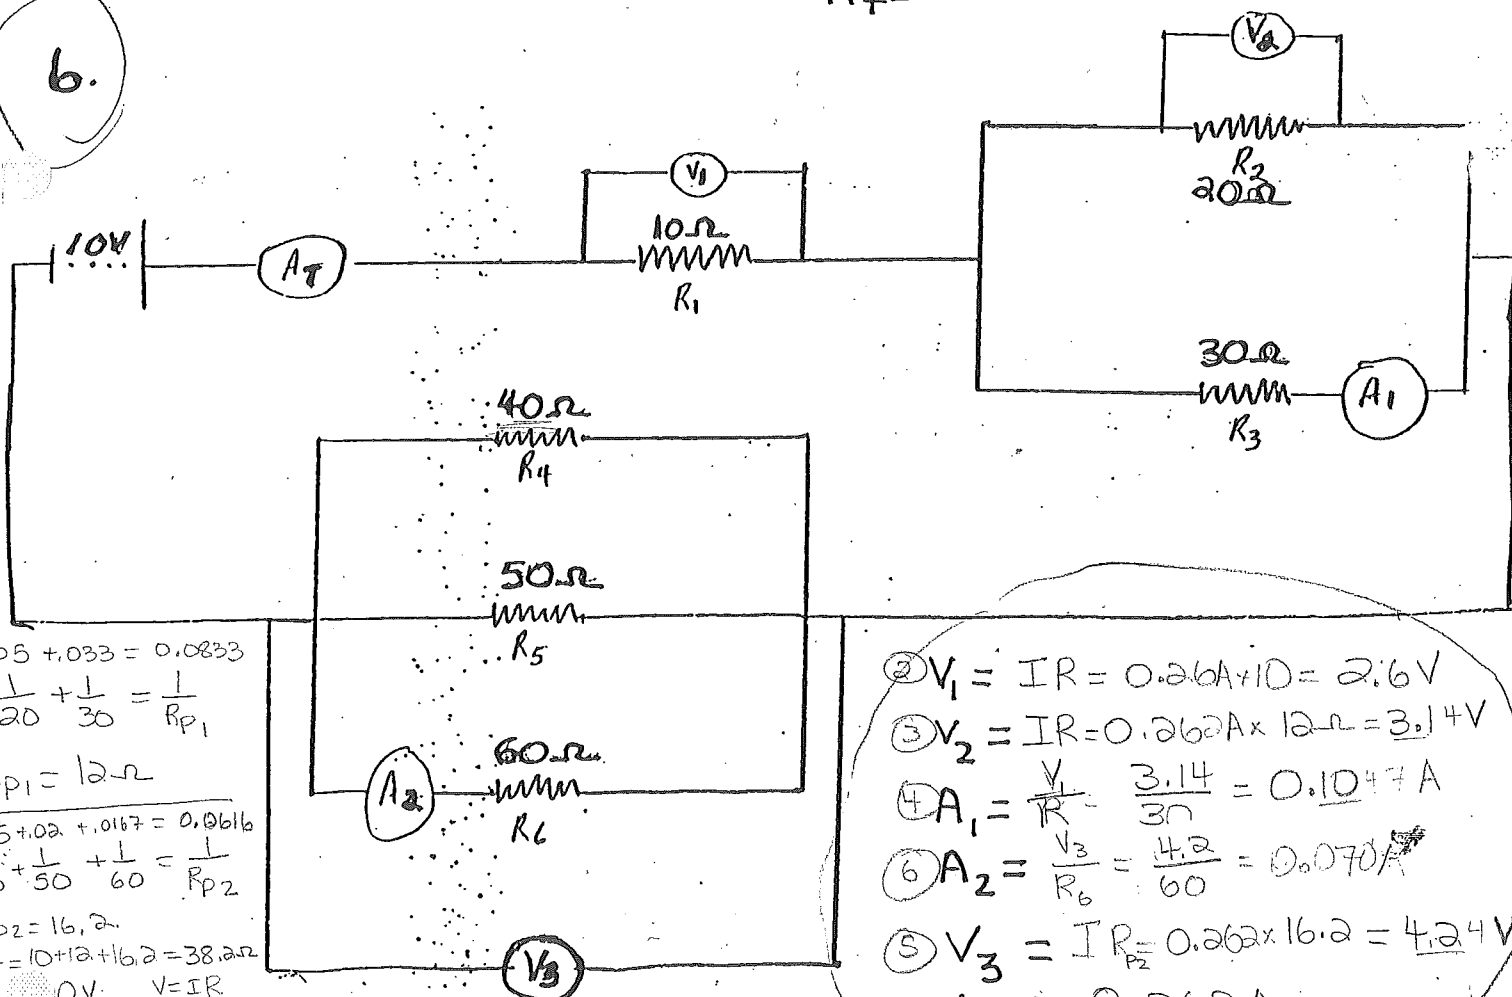 6.
V2
R2
20Ω
V1
10Ω
R1
10V
AT
30Ω
R3
A1
40Ω
R4
50Ω
R5
60Ω
R6
A2
V3
05 +.033 = 0.0833
1/20 + 1/30 = 1/Rp1
p1 = 12Ω
5+.02 +.0167 = 0.0616
+ 1/50 + 1/60 = 1/Rp2
p2 = 16,2
= 10+12+16.2 = 38.2Ω
0V V=IR
② V1 = IR = 0.26A×10 = 2.6V
③ V2 = IR = 0.262A × 12Ω = 3.14V
④ A1 = V1/R = 3.14/30 = 0.1047A
⑥ A2 = V3/R6 = 4.2/60 = 0.070A
⑤ V3 = IRp2 = 0.262×16.2 = 4.24V